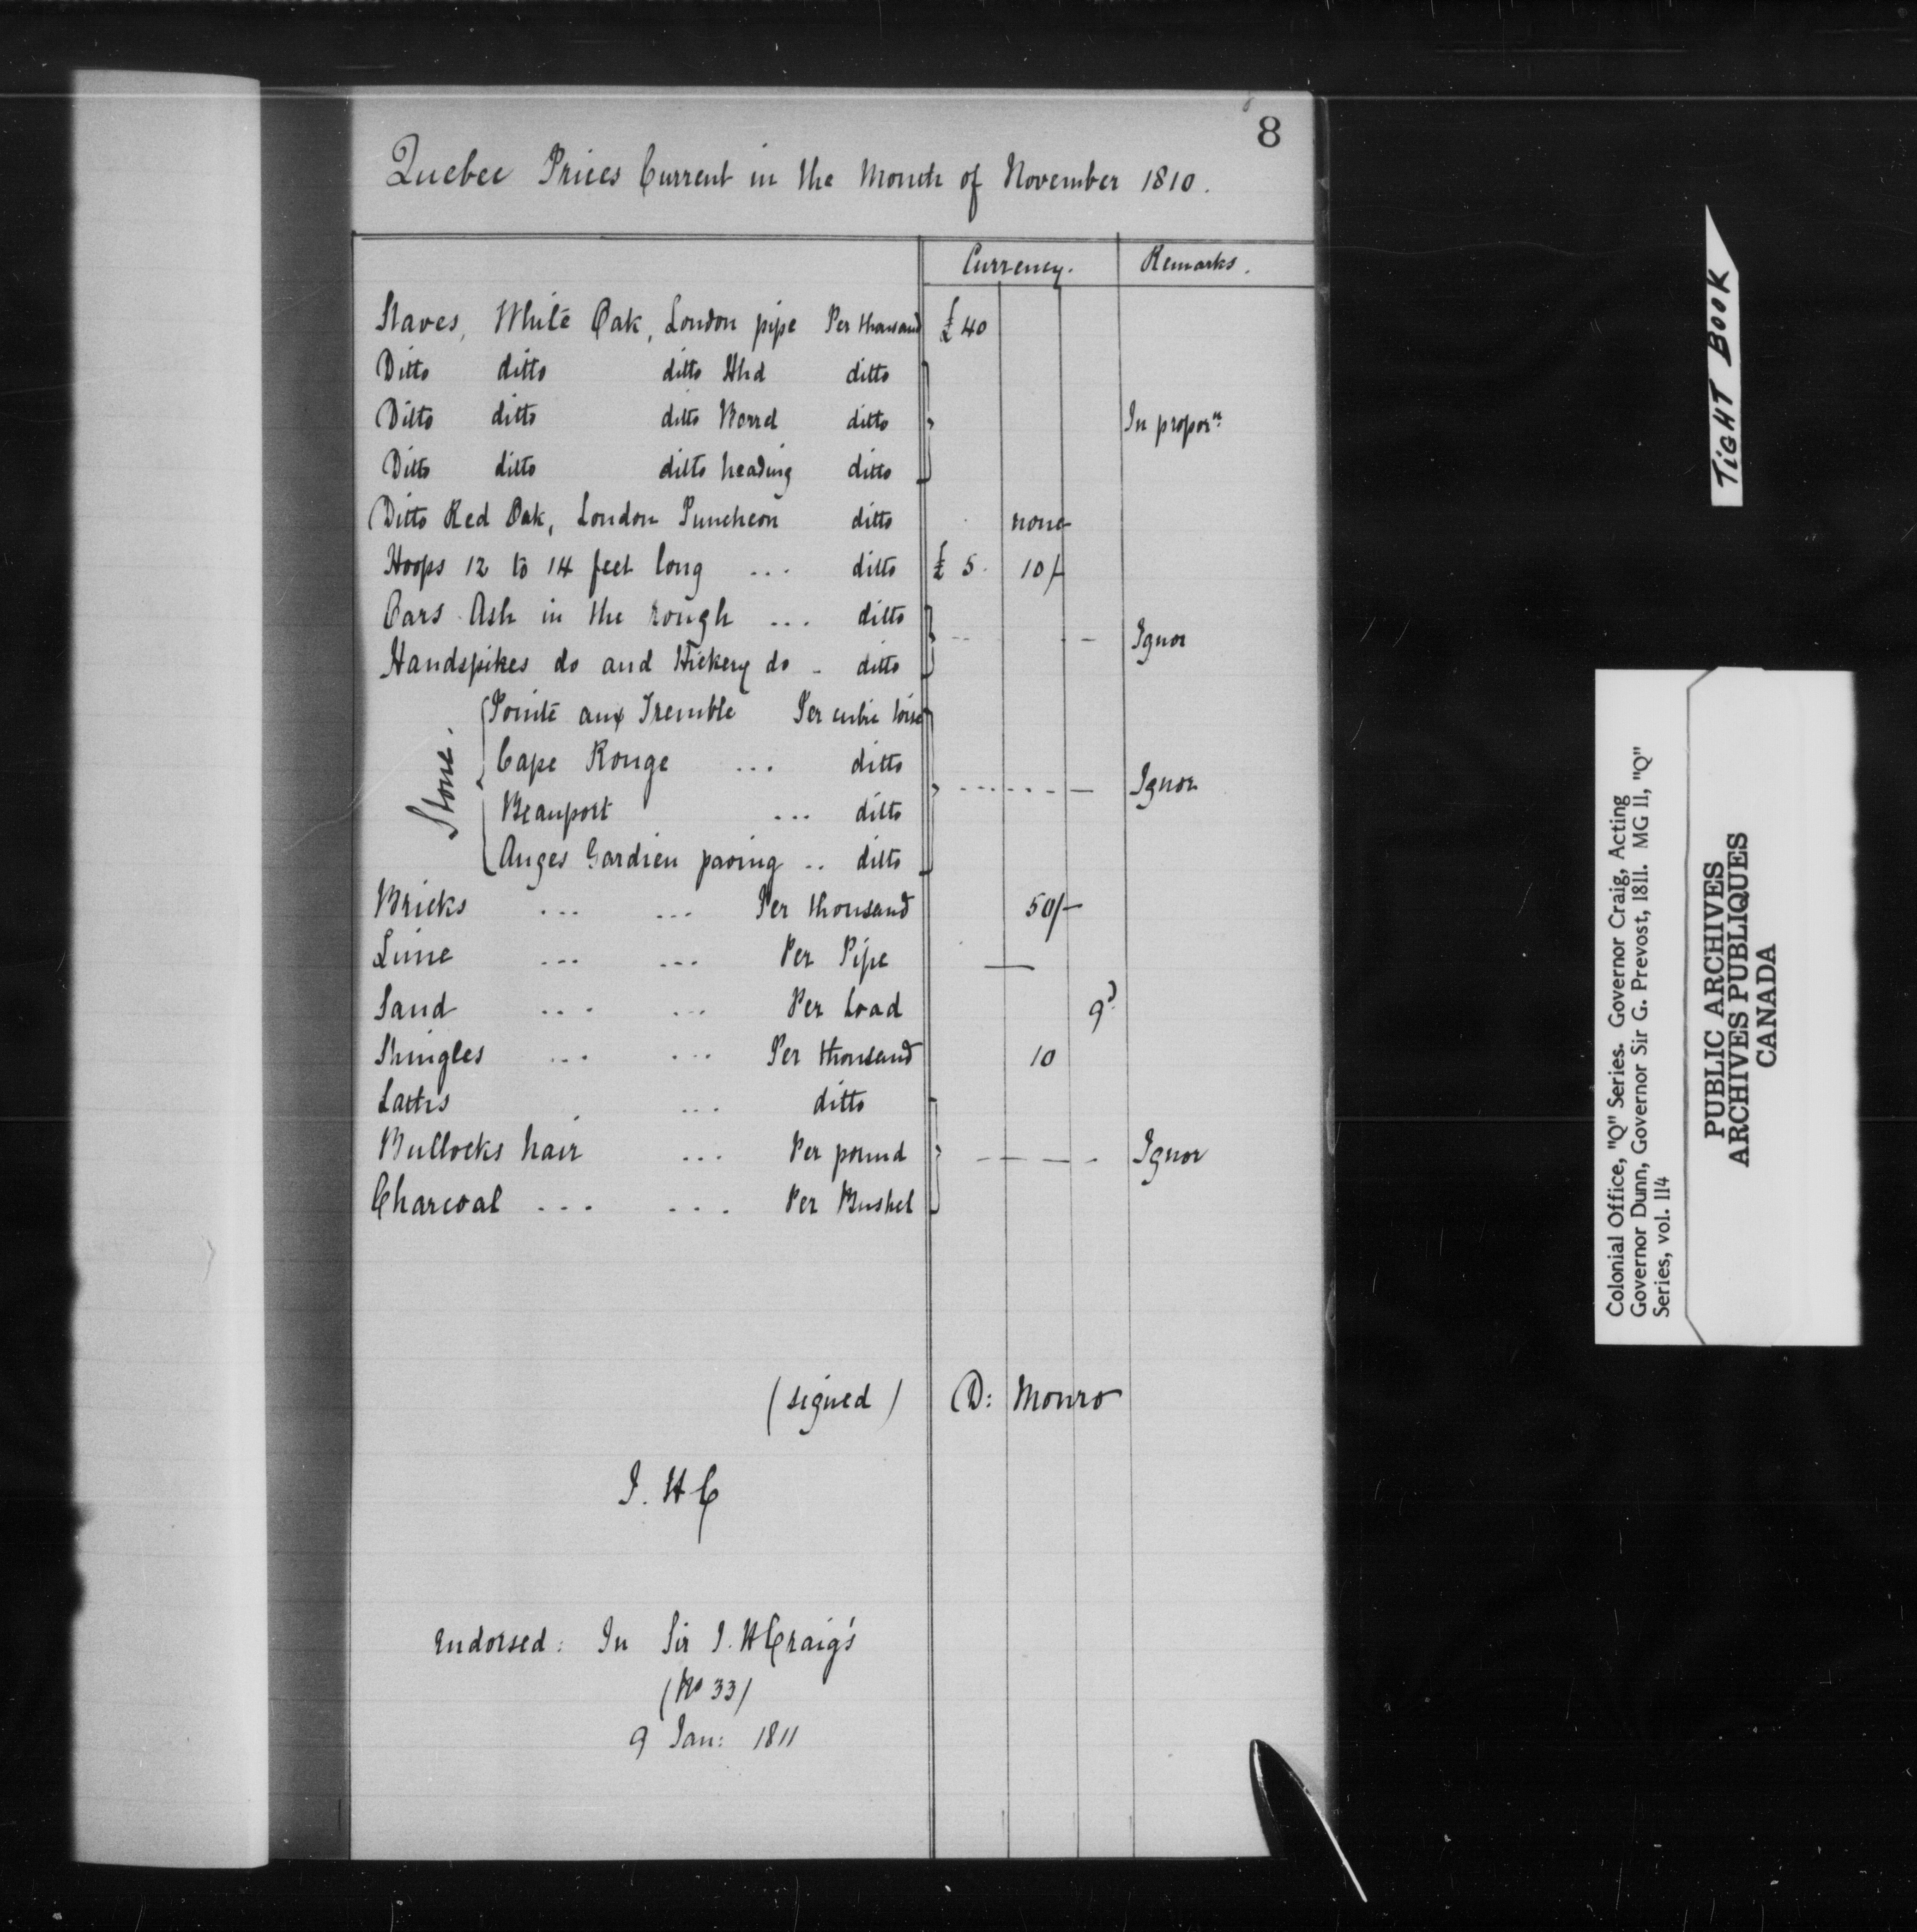 8
Quebec Prices Current in the Month of November 1810.
Currency. Remarks.
Staves, White Oak, London pipe Per thousand £ 40
Ditto ditto ditto Hhd ditto
Ditto ditto ditto Barrel ditto In proporn.
Ditto ditto ditto heading ditto
Ditto Red Oak, London Puncheon ditto none
Hoops 12 to 14 feet long ... ditto £ 5. 10/-
Oars Ash in the rough ... ditto
Handspikes do and Hickery do - ditto Ignor
Stone.
Pointe aux Tremble Per cubic toise
Cape Rouge ... ditto
Beauport ... ditto Ignor
Anges Gardien paving .. ditto
Bricks ... ... Per thousand 50/-
Lime ... ... Per Pipe —
Sand ... ... Per Load 9d.
Shingles ... ... Per thousand 10
Laths ... ditto
Bullocks hair ... Per pound - - - - Ignor
Charcoal ... ... Per Bushel
(signed) D: Monro
J. H C
Endorsed: In Sir J. H Craig's
(No 33)
9 Jan: 1811
TIGHT BOOK
Colonial Office, "Q" Series. Governor Craig, Acting
Governor Dunn, Governor Sir G. Prevost, 1811. MG 11, "Q"
Series, vol. 114
PUBLIC ARCHIVES
ARCHIVES PUBLIQUES
CANADA